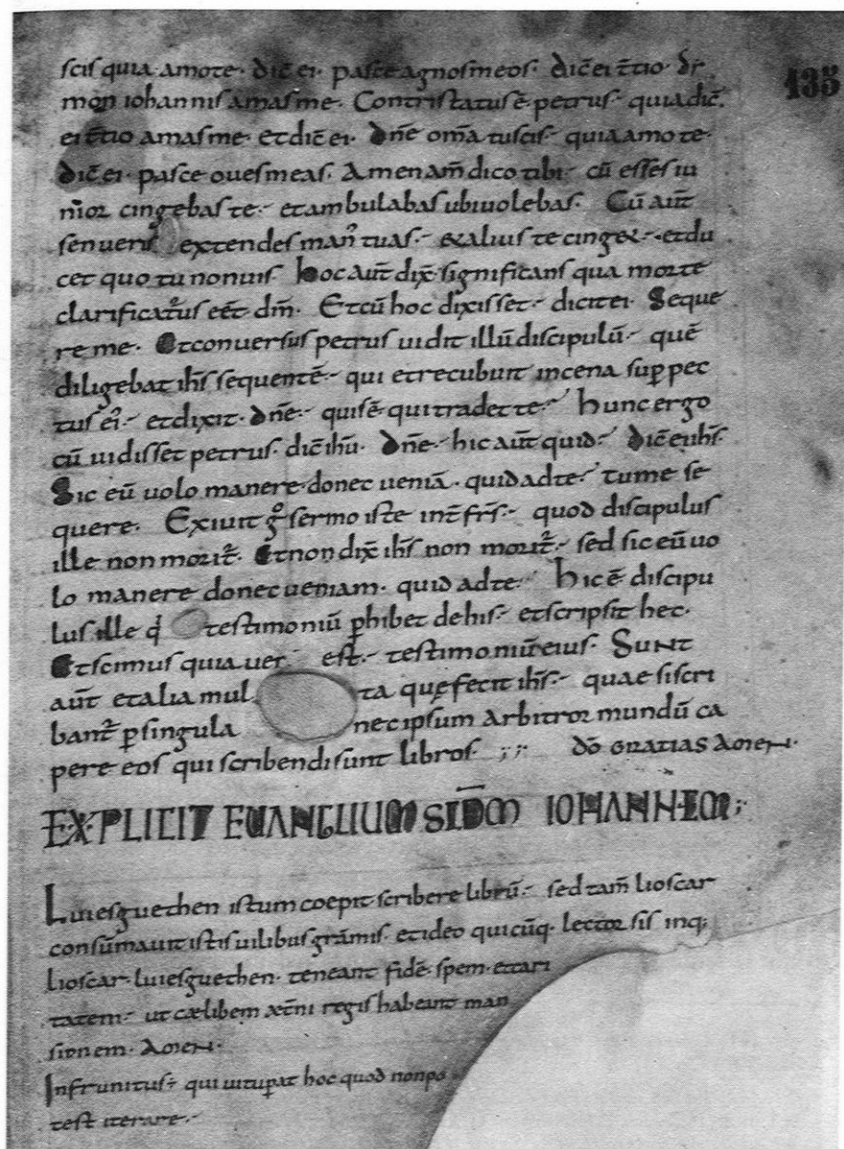 scis quia amo te· dic̄ ei· pasce agnos meos· dic̄ ei t̄tio·
135
mon iohannis amas me· Contristatus ē petrus· quia dic̄·
ei t̄tio amas me· et dic̄ ei· dn̄e om̄a tu scis· quia amo te·
dic̄ ei· pasce oues meas· Amen am̄ dico tibi· cū esses iu
nior cingebas te· et ambulabas ubi uolebas· Cū aūt
senueris extendes man᾿ tuas· & alius te cing&· et du
cet quo tu non uis hoc aūt dix̄ significans qua morte
clarificat᾿us eēt dm̄· Et cū hoc dixisset· dicit ei· Seque
re me· Et conuersus petrus uidit illū discipulū· quē
diligebat ih̄s sequentē· qui et recubuit in cena sup̄ pec
tus ei᾿· et dixit· dn̄e· quis ē qui tradet te· hunc ergo
cū uidisset petrus· dic̄ ih̄u· dn̄e· hic aūt quid· dic̄ ei ih̄s·
Sic eū uolo manere donec ueniā· quid ad te· tu me se
quere· Exiuit gͦ sermo iste int̄ fr̄s· quod discipulus
ille non morit᾿· Et non dix̄ ih̄s non morit᾿· sed sic eū uo
lo manere donec ueniam· quid ad te· hic ē discipu
lus ille q̄ testimoniū p̄hibet de his· et scripsit hec·
Et scimus quia uer est· testimoniū eius· Sunt
aūt et alia mul ta quę fecit ih̄s· quae si scri
bant᾿ p̄ singula nec ipsum arbitror mundū ca
pere eos qui scribendi sunt libros ;;· dō gratias amen·
EXPLICIT EUANGLIUM SCDM IOHANNEM;
Luiesguethen istum coepit scribere librū· sed tam̄ lioscar
consūmauit istis uilibus grāmis· et ideo quicūq· lector sis inq;
lioscar· luiesguethen· teneant fidē· spem· et cari
tatem· ut cælibem æt̄ni regis habeant man
sionem· Amen·
Infrunitus· qui uitup̄at hoc quod non po
test iterare·